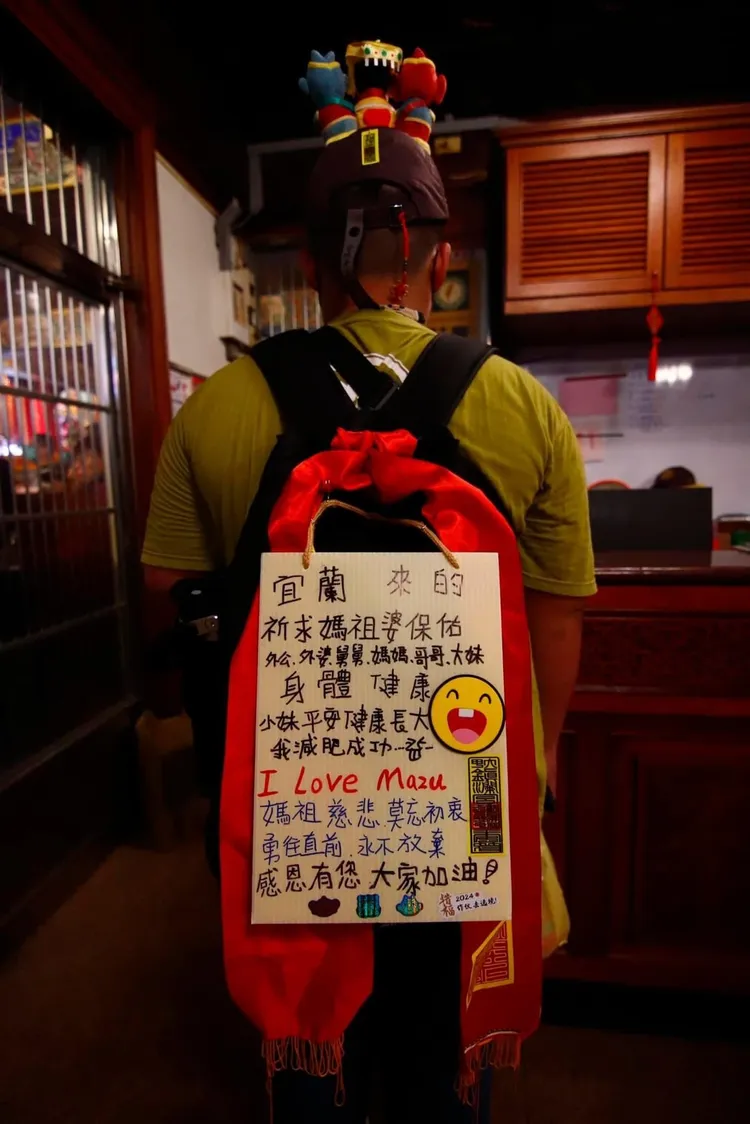 宜蘭 來的
祈求媽祖婆保佑
外公.外婆.舅舅.媽媽.哥哥.大妹
身體健康
小妹平安健康長大
我減肥成功...
I Love Mazu
媽祖慈悲.莫忘初衷
勇往直前.永不放棄
感恩有您 大家加油!
2024年